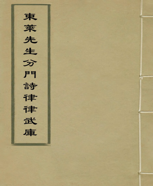 東萊先生分門詩律律武庫